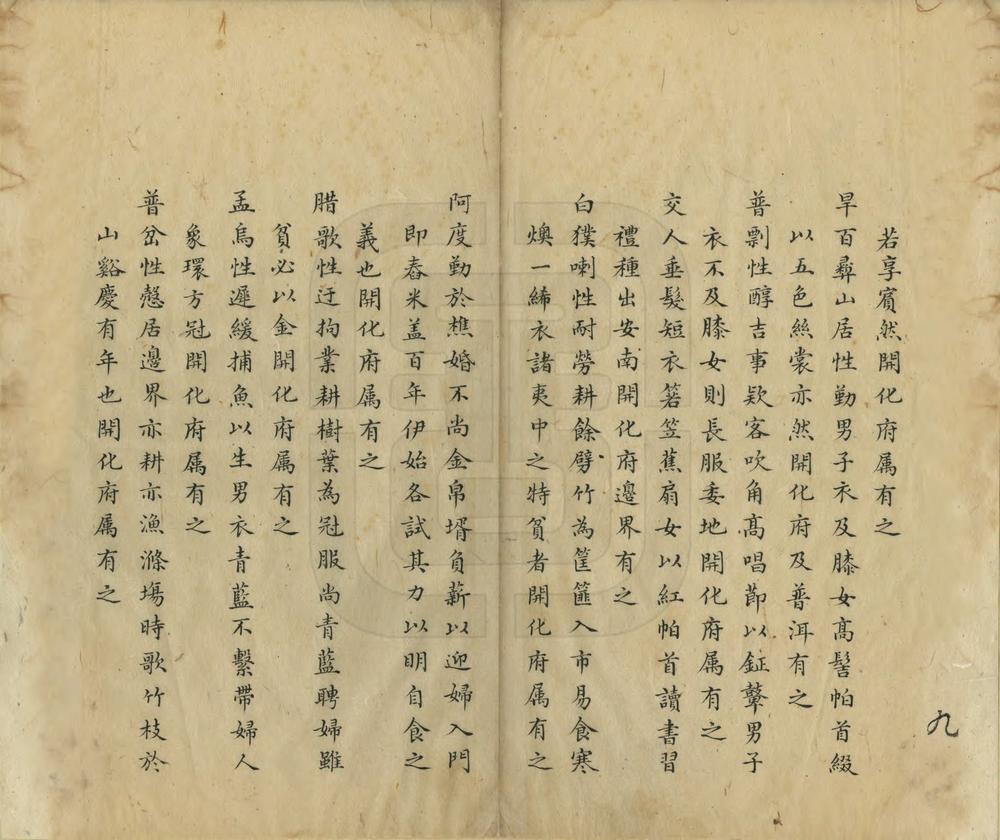 若享賓然開化府属有之
旱百彛山居性勤男子衣及膝女髙髻帕首綴
以五色絲裳亦然開化府及普洱有之
普剽性醇吉事欵客吹角髙唱節以鉦鼙男子
衣不及膝女則長服委地開化府属有之
交人垂髮短衣箬笠蕉扇女以紅帕首讀書習
禮種出安南開化府邊界有之
白獛喇性耐勞耕餘劈竹為筐篚入市易食寒
燠一絺衣諸夷中之特貧者開化府属有之
阿度勤於樵婚不尚金帛壻負薪以迎婦入門
即舂米盖百年伊始各試其力以明自食之
義也開化府属有之
腊歌性迂拘業耕樹葉為冠服尚青藍聘婦雖
貧必以金開化府属有之
孟烏性遲緩捕魚以生男衣青藍不繫帶婦人
象環方冠開化府属有之
普岔性愨居邊界亦耕亦漁滌塲時歌竹枝於
山谿慶有年也開化府属有之
九